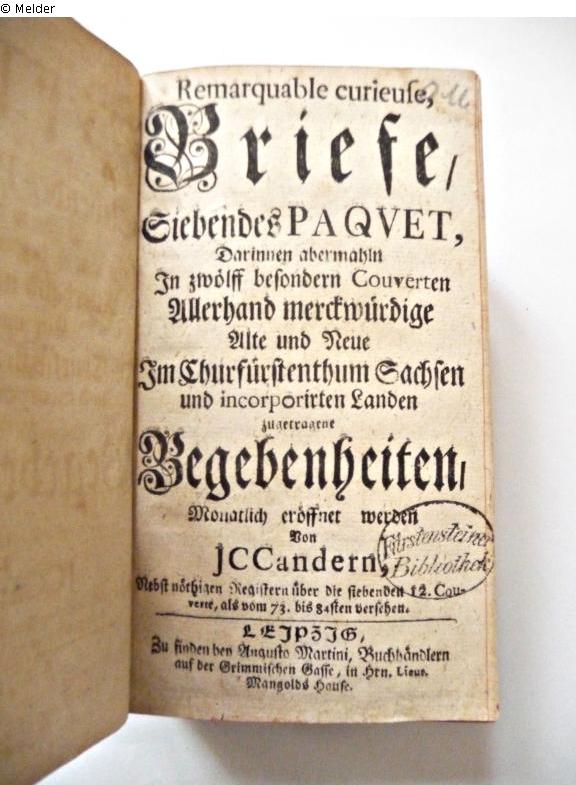 © Melder
Remarquable curieuse,
Briefe /
Siebendes PAQVET,
Darinnen abermahln
In zwölff besondern Couverten
Allerhand merckwürdige
Alte und Neue
Im Churfürstenthum Sachsen
und incorporirten Landen
zugetragene
Begebenheiten /
Monatlich eröffnet werden
Von
JCCandern,
Nebst nöthigen Registern über die siebenden 12. Cou-
verte, als vom 73. bis 84sten versehen.
Fürstensteiner
Bibliothek
LEJPZJG,
Zu finden bey Augusto Martini, Buchhändlern
auf der Grimmischen Gasse, in Hrn. Lieut.
Mangolds Hause.